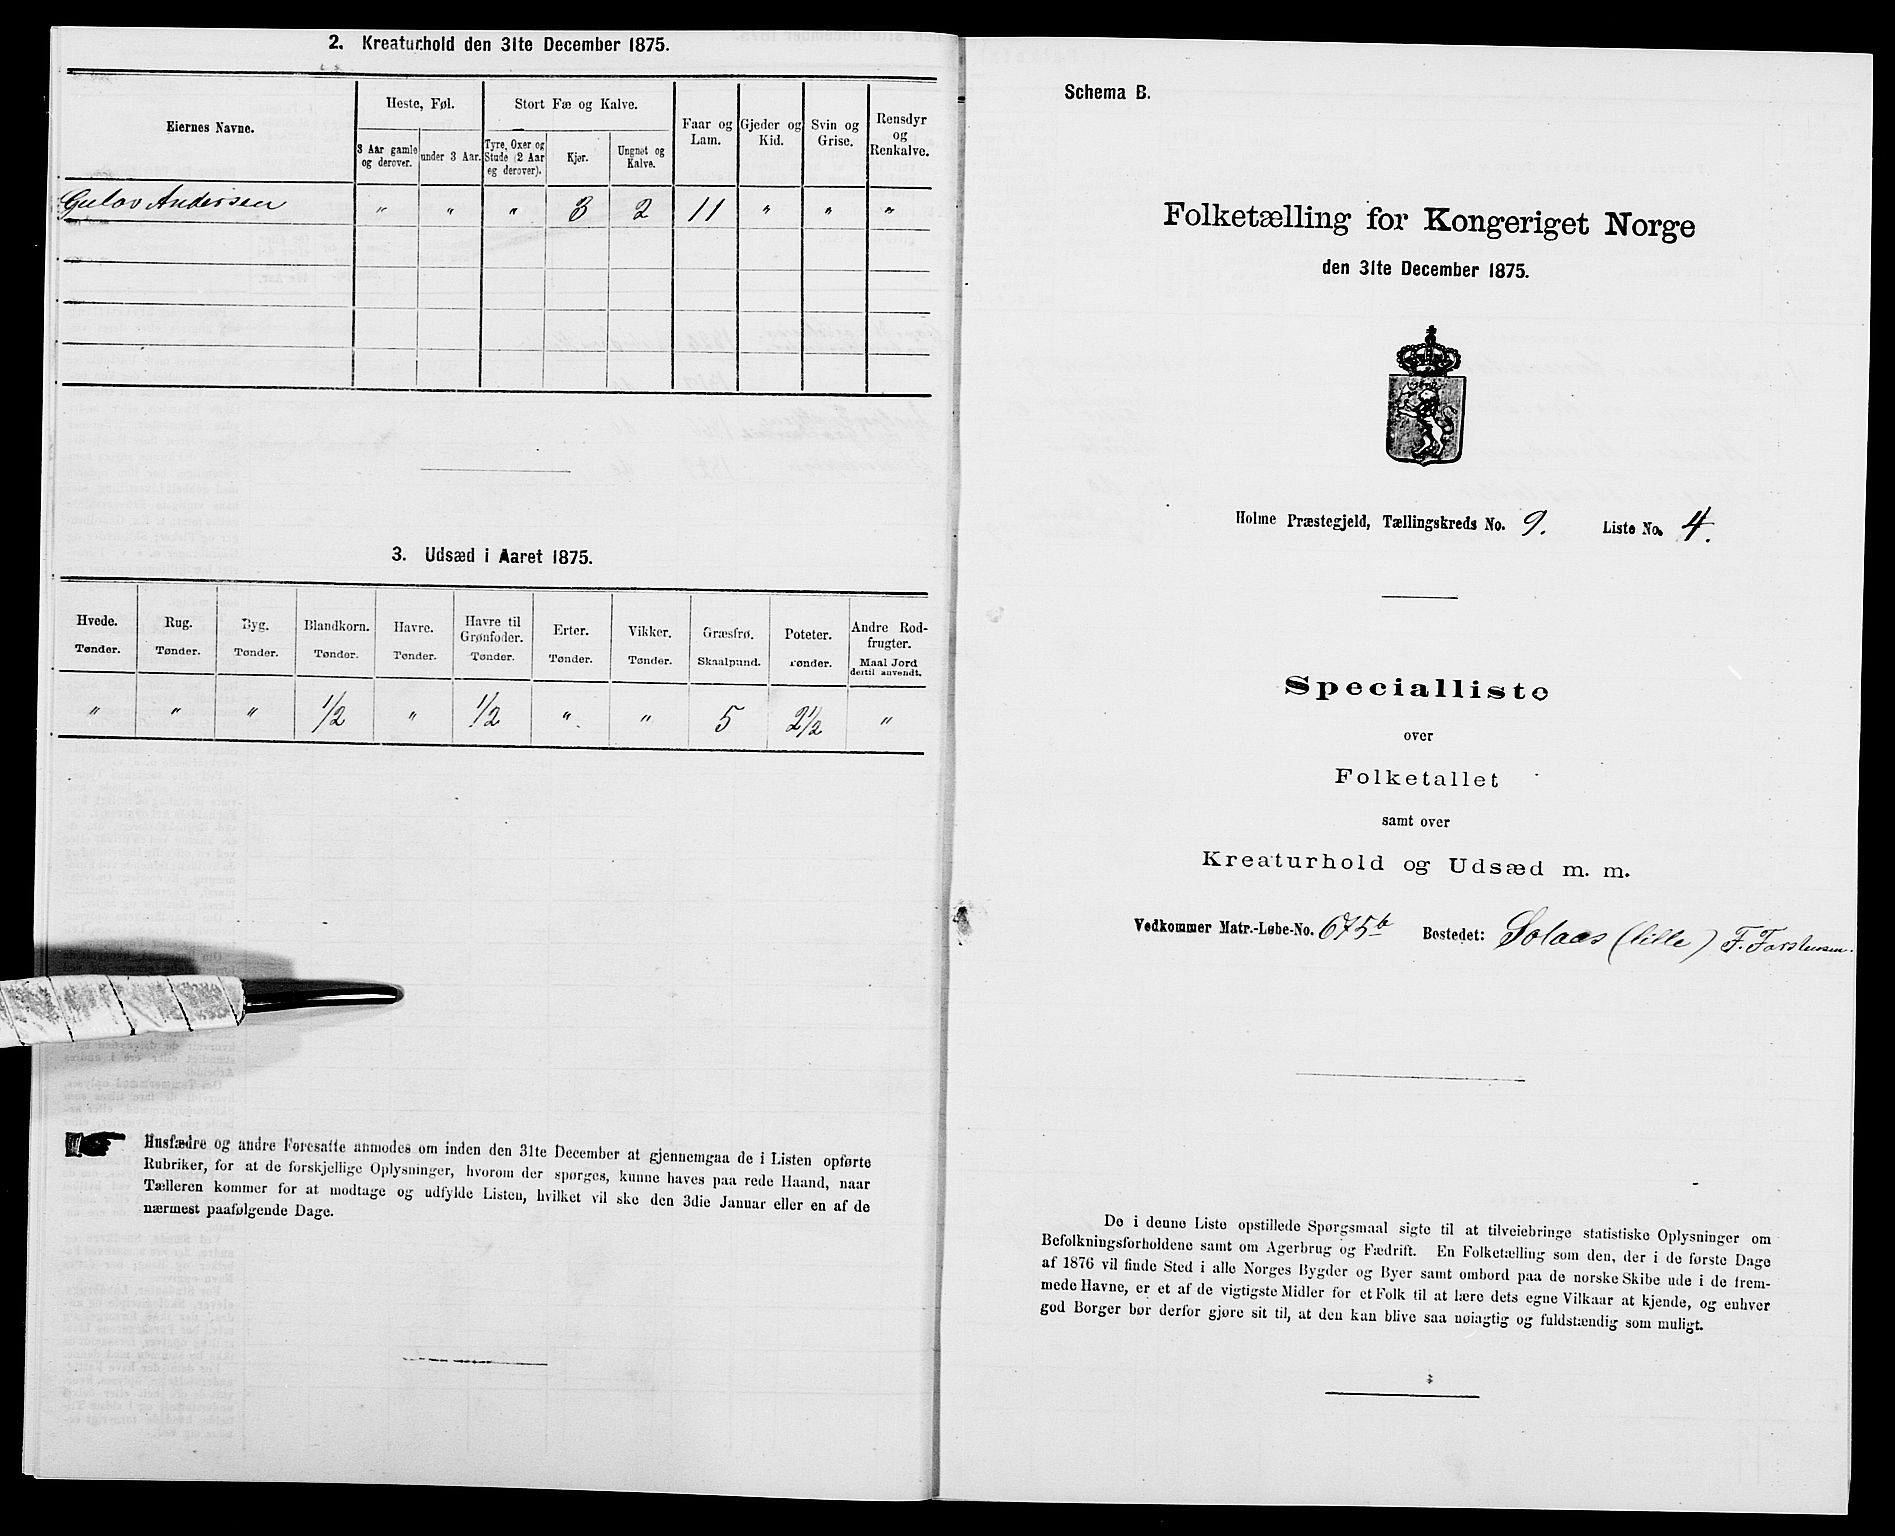 2. Kreaturhold den 31te December 1875.
Eiernes Navne.
Heste, Føl.
Stort Fæ og Kalve.
Faar og Lam.
Gjeder og Kid.
Svin og Grise.
Rensdyr og Renkalve.
3 Aar gamle og derover.
under 3 Aar.
Tyre, Oxer og Stude (2 Aar og derover).
Kjør.
Ungnøt og Kalve.
Gulov Andersen " " " 3 2 11 " " "
3. Udsæd i Aaret 1875.
Hvede. Rug. Byg. Blandkorn. Havre. Havre til Grønfoder. Erter. Vikker. Græsfrø. Poteter. Andre Rod-frugter.
Tønder. Tønder. Tønder. Tønder. Tønder. Tønder. Tønder. Tønder. Skaalpund. Tønder. Maal Jord dertil anvendt.
" " " 1/2 " 1/2 " " 5 2 1/2 "
Husfædre og andre Foresatte anmodes om inden den 31te December at gjennemgaa de i Listen opførte
Rubriker, for at de forskjellige Oplysninger, hvorom der spørges, kunne haves paa rede Haand, naar
Tælleren kommer for at modtage og udfylde Listen, hvilket vil ske den 3die Januar eller en af de
nærmest paafølgende Dage.
Schema B.
Folketælling for Kongeriget Norge
den 31te December 1875.
Holme Præstegjeld, Tællingskreds No. 9. Liste No. 4.
Specialliste
over
Folketallet
samt over
Kreaturhold og Udsæd m. m.
Vedkommer Matr.-Løbe-No. 675b Bostedet: Solaas (lille) F. Torstensen.
De i denne Liste opstillede Spørgsmaal sigte til at tilveiebringe statistiske Oplysninger om
Befolkningsforholdene samt om Agerbrug og Fædrift. En Folketælling som den, der i de første Dage
af 1876 vil finde Sted i alle Norges Bygder og Byer samt ombord paa de norske Skibe ude i de frem-
mede Havne, er et af de vigtigste Midler for et Folk til at lære dets egne Vilkaar at kjende, og enhver
god Borger bør derfor gjøre sit til, at den kan blive saa nøiagtig og fuldstændig som muligt.